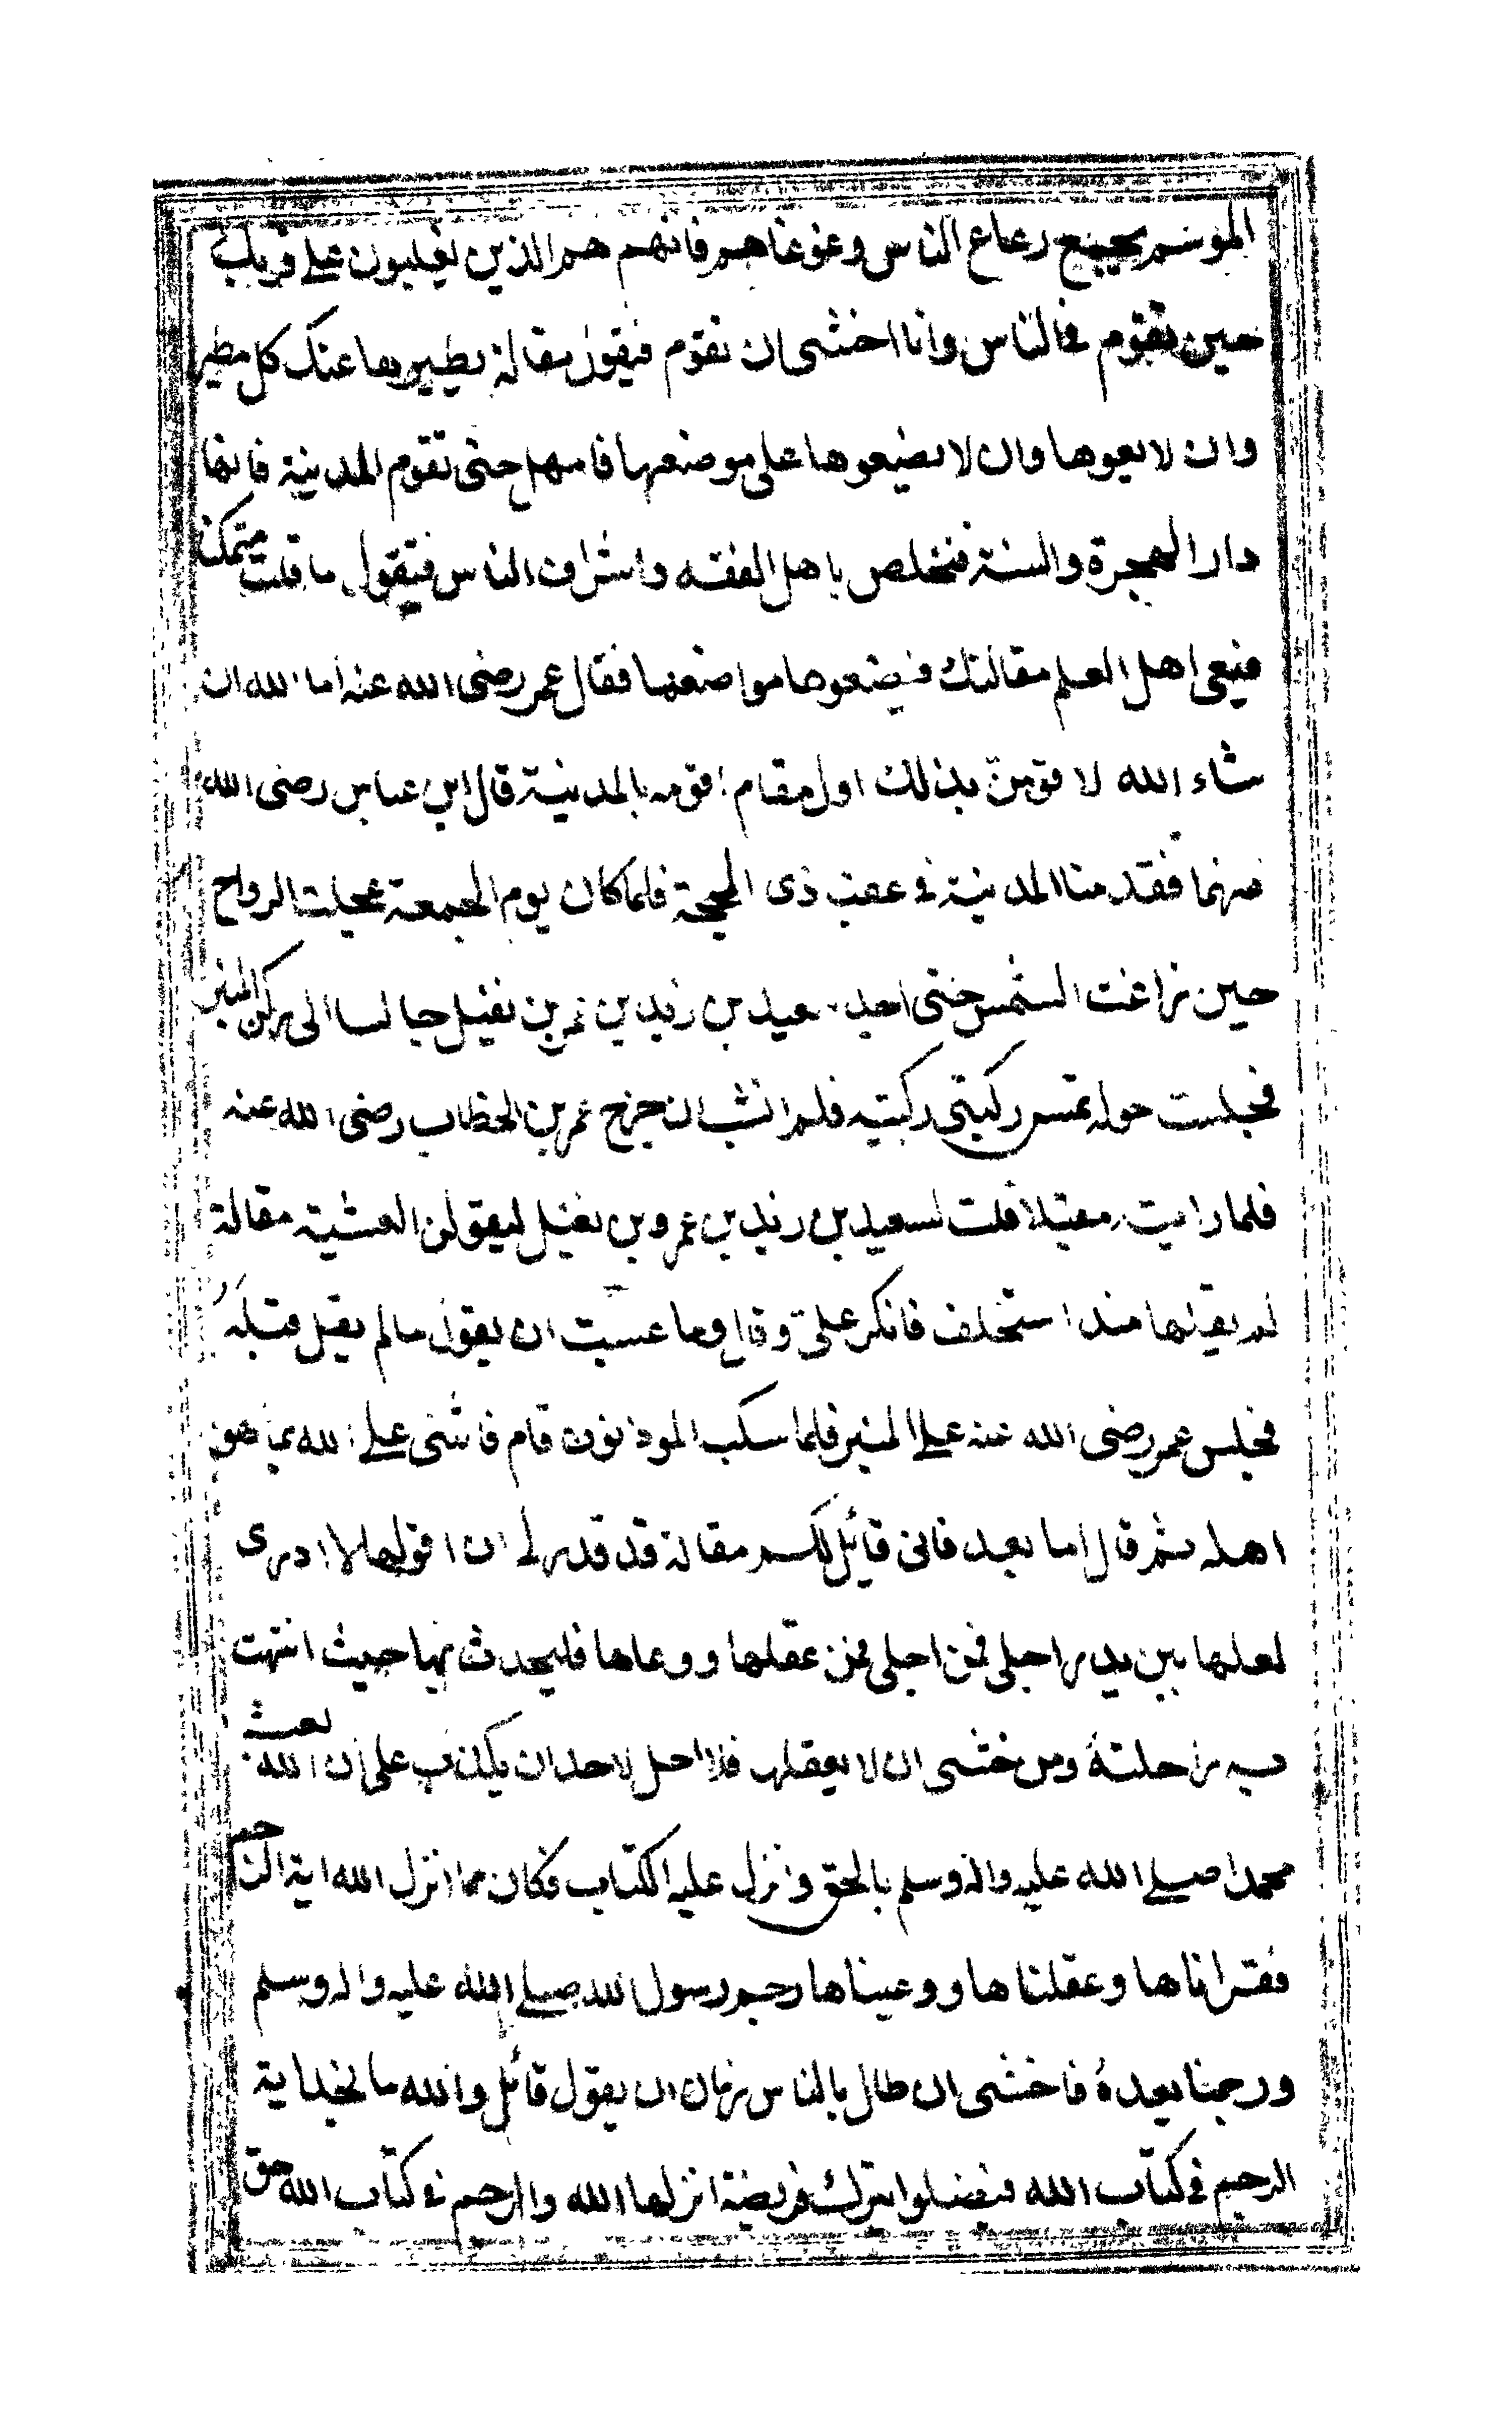 الموسم يجمع رعاع الناس وغوغاهم فانهم هم الذين يغلبون على قربك
حين تقوم فى الناس وانا اخشى ان تقوم فتقول مقالة يطير بها عنك كل مطير
وان لا يعوها وان لا يضعوها على موضعها فامهل حتى تقوم المدينة فانها
دار الهجرة والسنة فتخلص باهل الفقه واشراف الناس فتقول ما قلت متمكنا
فيعى اهل العلم مقالتك فيضعوها مواضعها فقال عمر رضى الله عنه أما الله ان
شاء الله لا قومن بذلك اول مقام اقومه بالمدينة قال ابن عباس رضى الله
عنهما فقدمنا المدينة فى عقب ذى الحجة فلما كان يوم الجمعة عجلت الرواح
حين زاغت الشمس حتى اجد سعيد بن زيد بن عمر بن نفيل جالسا الى ركن المنبر
فجلست حوله تمس ركبتى ركبتيه فلم انشب ان خرج عمر بن الخطاب رضى الله عنه
فلما رايته مقبلا قلت لسعيد بن زيد بن عمرو بن نفيل ليقولن العشية مقالة
لم يقلها منذ استخلف فانكر على وقال وما عسيت ان يقول ما لم يقل قبله
فجلس عمر رضى الله عنه على المنبر فلما سكب الموذنون قام فاثنى على الله بما هو
اهله ثم قال اما بعد فانى قائل لكم مقالة قد قدر لى ان اقولها لا ادرى
لعلها بين يدى اجلى فمن عقلها ووعاها فليحدث بها حيث انتهت
به راحلتة ومن خشى ان لا يعقلها فلا احل لاحد ان يكذب على إن الله بعث
محمدا صلى الله عليه واله وسلم بالحق وانزل عليه الكتاب فكان مما انزل الله اية الرجم
فقراناها وعقلناها ووعيناها رجم رسول الله صلى الله عليه واله وسلم
ورجمنا بعدهُ فاخشى ان طال بالناس زمان ان يقول قائل والله ما نجد اية
الرجم فى كتاب الله فيضلوا بترك فريضة انزلها الله والرجم فى كتاب الله حق